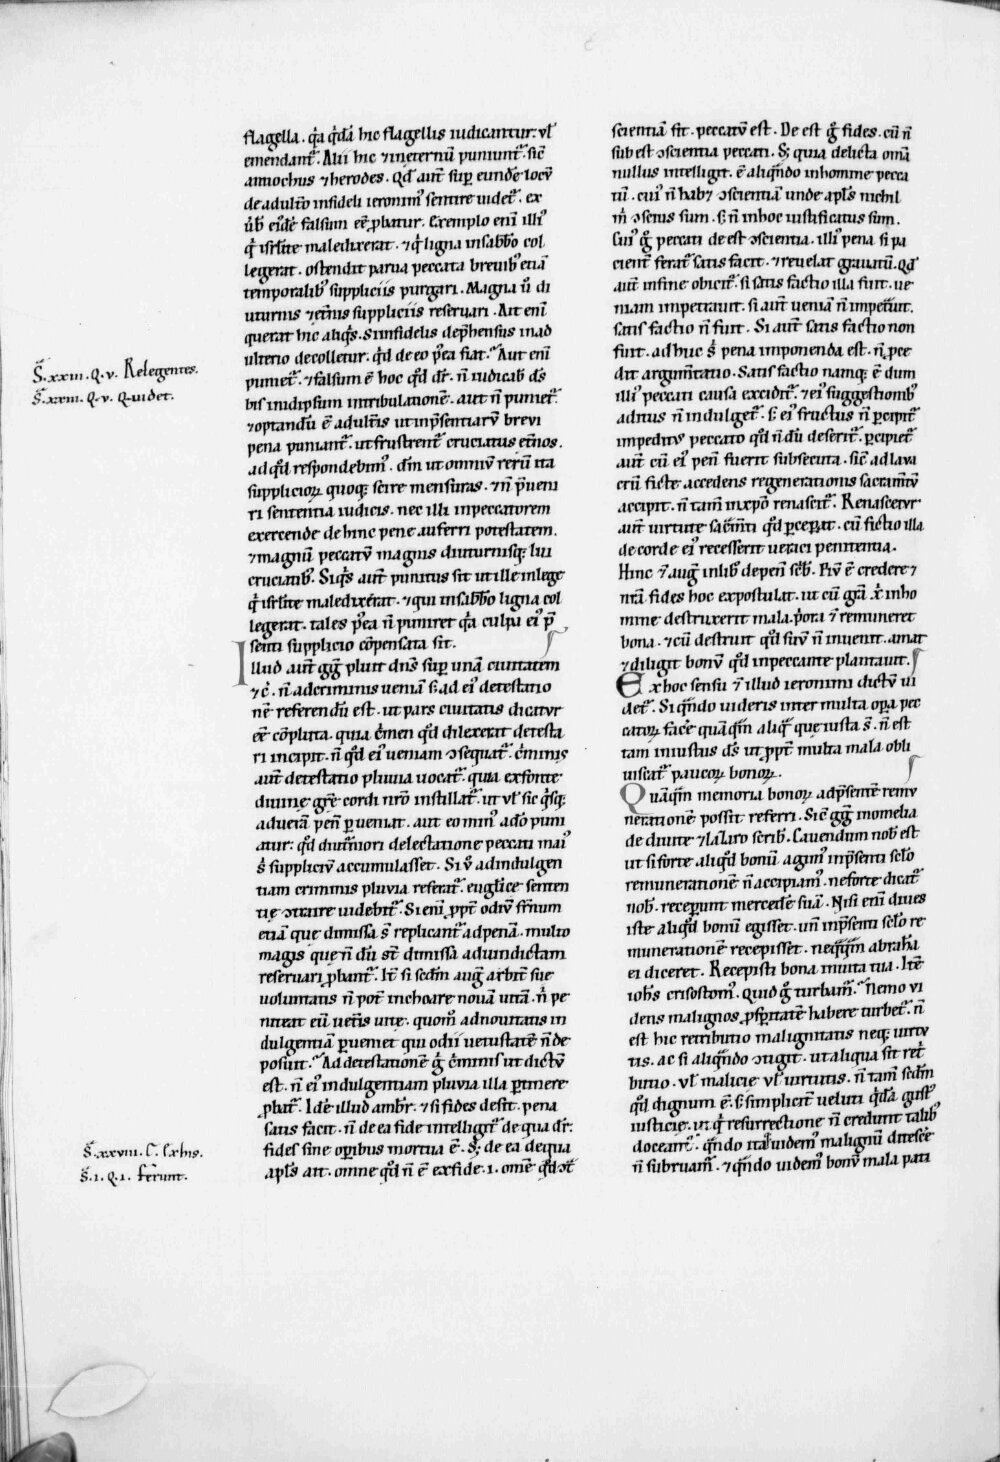 flagella . q̇a q̇dā hic flagellis iudicantur . ul̓
emendant᷑ . Alii hic ⁊ ineternū puniunt᷑ . sic̄
antiochus ⁊ herodes . Qd̓ aut̄ sup̲ eunde locū
de adultro infideli ieronim᷒ sentire uidet᷑ . ex
ūb᷒ eid̓e falsum eē ꝓbatur . Exemplo eni illi᷒
q̇ isrłite maledixerat . ⁊ q̇ ligna insabb̄o col
legerat . ostendit parua peccata breuib᷒ etiā
temporalib᷒ suppliciis purgari . Magna ū di
uturnis ⁊ et̄nis suppliciis reseruari . Ait eni
querat hic aliq̇s . Si infidelis dep̄hensus inad
ulterio decolletur . qd̓ de eo p̄ea fiat . Aut eni
pumet᷑ . ⁊ falsum ē hoc qd̓ dr̄ . n̄ iudicab̓ ds̄
bis inidipsum intribulatione . aut n̄ puniet᷑
⁊ optandū ē adultis ut inp̄sentiarū brevi
pena puniant᷑ . ut frustrent᷑ cruciatus et̄nos .
ad qd̓ respondebim᷒ . dm̄ ut omniū rerū ita
suppliciorꝝ quoqꝫ scire mensuras . ⁊ n̄ p̄ueni
ri sententia iudicis . nec illi inpeccatorem
exercende de hinc pene auferri potestatem .
⁊ magnū peccatū magnis diuturnisqꝫ lui
cruciatib᷒ . Siq̇s aut̄ punitus sit ut ille inlege
q̇ isrłite maledixerat . ⁊ qui insabb̄o ligna col
legerat . tales p̄ea n̄ puniret q̇a culpa ei᷒ p̄
senti supplicio cōpensata sit .
Illud aut̄ gg̓ pluit dns̄ sup̲ unā ciuitatem
⁊ c̓ . n̄ adcriminis ueniā s̓ ad ei᷒ detestatio
nē referendū est . ut pars ciuitatis dicatur
eē cōpluta . quia c̓men qd̓ dilexerat detesta
ri incipit . n̄ qd̓ ei᷒ ueniam ɔsequat᷑ . c̓minis
aut̄ detestatio pluuia uocat᷑ . quia exfonte
diuine gr̄e cordi nr̄o instillat᷑ . ut ul̓ sic q̇sqꝫ
aduerā pen̄ ꝑueniat . aut eo min᷒ ad̓o puni
atur . qd̓ diut̄niori delectatione peccati mai᷒
s̓ suppliciū accumulasset . Si ū adindulgen
tiam criminis pluuia referat᷑ . euglice senten
tie ɔtraire uidebit᷑ . Si eni ꝓpt̄ odiū fr̄num
etiā que dimissa s̄ replicant᷑ adpenā . multo
magis que n̄ dū st̄ dimissa aduindictam
reseruari ꝓbant᷑ . It̄ si scdm̄ aug̓ arbit̄ sue
uoluntatis n̄ pot̄ inchoare nouā uitā . n̓ pe
niteat eū uet̄is uite . quom̄ adnouitatis in
dulgentiā ꝑueniet qui odii uetustatē n̄ de
posuit . Ad detestationē g̓ c̓minis ut dictū
est . n̄ ei᷒ indulgentiam pluuia illa ꝑtinere
ꝓbat᷑ . Id̓e illud ambr̄ . ⁊ si fides desit . pena
satis facit . n̄ de ea fide intelligit᷑ de qua dr̄ :
fides sine oꝑibus mortua ē . Sꝫ de ea dequa
apl̄s ait . omne qd̓ n̄ ē exfide . i . omē qd̓ ɔt̄
S̓ . xxiii . Q . v . Relegentes .
S̓ . xxiii . Q . v . Q . uidet .
S̓ . xxviii . C . Ex his .
S̓ . i . Q . i . ferunt .
scientiā fit . peccatū est . De est g̓ fides . cū n̄
sub est ɔscientia peccati . Sꝫ quia delicta om̄a
nullus intelligit . ē aliqn̄do inhomine pecca
tū . cui᷒ n̄ habꝫ ɔscientiā unde apl̄s nichil
m̓ ɔscius sum . s̓ n̄ inhoc iustificatus sum .
Cui᷒ g̓ peccati de est ɔscientia . illi᷒ pena si pa
cient̄ ferat᷑ satis facit . ⁊ reuelat grauatū . Qd̓
aut̄ infine obicit᷑ . si satis factio illa fuit . ue
niam impetrauit . si aut̄ ueniā n̄ impet̄uit .
satis factio n̄ fuit . Si aut̄ satis factio non
fuit . ad huc s̓ pena imponenda est . n̄ ꝓce
dit argum̄tatio . Satis factio namqꝫ ē dum
illi᷒ peccati causa exciditᷓ . ⁊ ei᷒ suggestionib᷒
aditus n̄ indulget᷑ . s̓ ei᷒ fructus n̄ ꝑcipit᷑
impeditus peccato qd̓ n̄ dū deserit᷑ . ꝑcipiet᷑
aut̄ cū ei᷒ pen̄ fuerit subsecuta . sic̄ ad laua
crū ficte accedens regenerationis sacram̄tū
accipit . n̄ tam̄ inxp̄o renascit᷑ . Renascetur
aut̄ uirtute sac̄m̄ti qd̓ ꝑceꝑat . cū fictio illa
de corde ei᷒ recesserit ueraci penitentia .
Hinc ⁊ aug̓ inlib᷒ depen̄ sc̓b . Piū ē credere ⁊
nr̄a fides hoc expostulat . ut cū gr̄a x̓ inho
mine destruxerit mala . p̓ora ⁊ remuneret
bona . ⁊ cū destruit qd̓ suū n̄ inuenit . amat
⁊ diligit bonū qd̓ inpeccante plantauit .
Ex hoc sensu ⁊ illud ieronimi dictū ui
det᷑ . Si qn̄do uideris inter multa opa pec
catorꝝ . facē quāqm̄ aliq̇ que iusta s̄ . n̄ est
tam iniustus ds̄ ut ꝓpt̄ multa mala obli
uiscat᷑ paucorꝝ bonorꝝ .
Quāqm̄ memoria bonorꝝ adp̄sentē remu
nerationē possit referri . Sic̄ gg̓ inomelia
de diuite ⁊ lazaro scrib̓ . Cauendum nob̓ est
ut si forte aliqd̓ bonū agim᷒ inp̄senti sc̄lo
remunerationē n̄ accipiam᷒ . neforte dicat᷑
nob̓ . receperunt mercedē suā . Nisi eni diues
iste aliqd̓ bonū egisset . un̄ inp̄senti sc̄lo re
munerationē recepisset . neq̇q̇m abrahā
ei diceret . Recepisti bona inuita tua . Itē
ioh̄s crisostom᷒ . Quid g̓ turbam᷑ . Nemo vi
dens malignos ꝓsꝑitatē habere turbet᷑ . n̄
est hic retributio malignitatis neqꝫ uirtu
tis . ac si aliqn̄do ɔtigit . ut aliqua sit ret̓
butio . ul̓ malicie ul̓ uirtutis . n̄ tam̄ scdm̄
qd̓ dignum ē . s̓ simplicit̄ ueluti q̇dā gust᷒
iusticie . ut q̇ resurrectione n̄ credunt talib᷒
doceant᷑ . qn̄do itaq̓ uidem᷒ malignū ditescē
n̄ subruam᷑ . ⁊ qn̄do uidem᷒ bonū mala pati